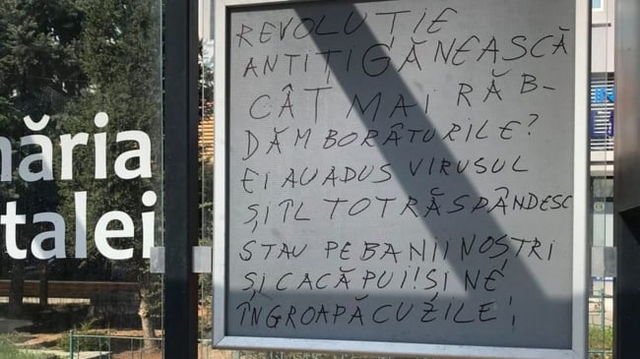 REVOLUȚIE
ANTIȚIGĂNEASCĂ
CÂT MAI RĂB-
DĂM BORÂTURILE?
EI AU ADUS VIRUSUL
ȘI ÎL TOT RĂSPÂNDESC
STAU PE BANII NOȘTRI
ȘI CACĂ PUI! ȘI NE
ÎNGROAPĂ CU ZILE!
măria
talei